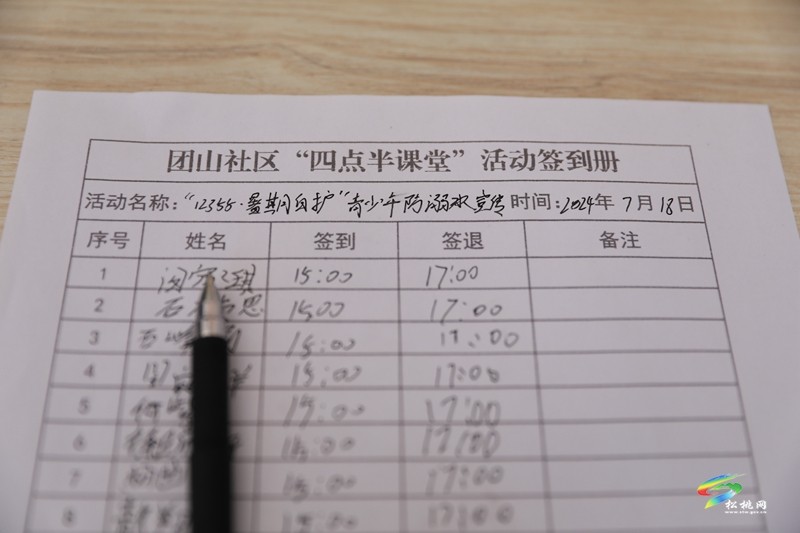 团山社区“四点半课堂”活动签到册
活动名称：“12355·暑期自护”青少年防溺水宣传 时间：2024年7月18日
序号 姓名 签到 签退 备注
1 15:00 17:00
2 石 思 1500 17:00
3 15:00 17:00
4 15:00 17:00
5 15:00 17:00
6 15:00 17:00
7 15:00 17:00
8 15:00 17:00
松桃网